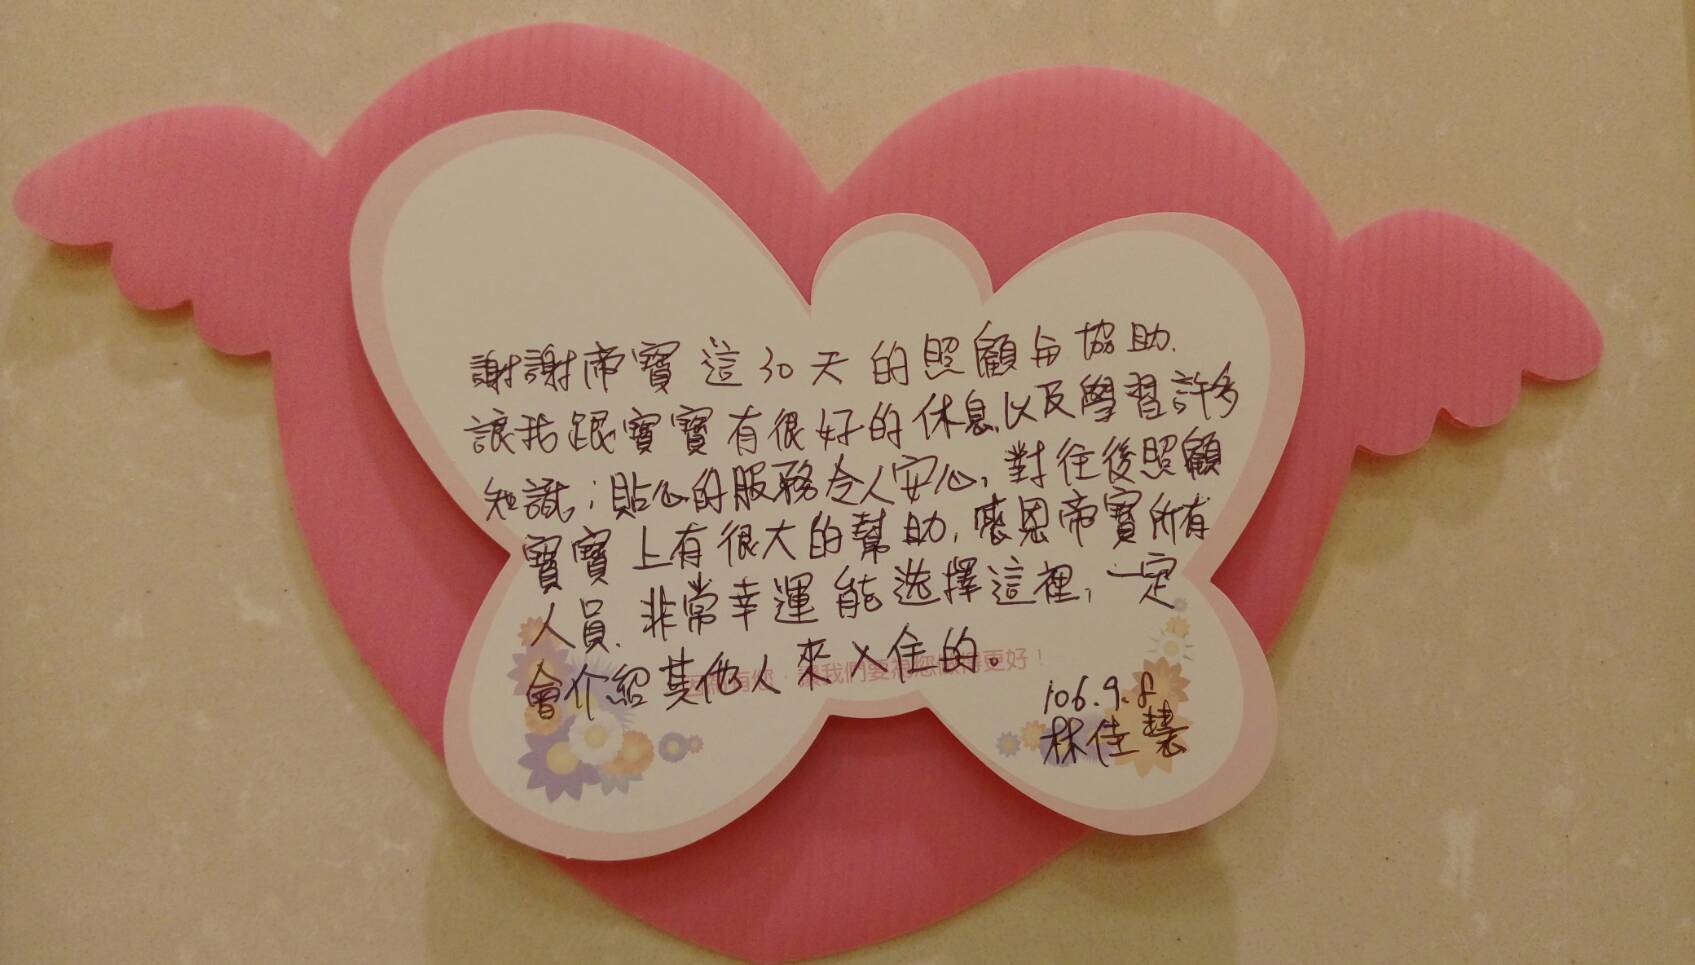 謝謝帝寶這30天的照顧与協助.
讓我跟寶寶有很好的休息,以及學習許多
知識;貼心的服務令人安心,對往後照顧
寶寶上有很大的幫助,感恩帝寶所有
人員.非常幸運能选擇這裡,一定
會介紹其他人來入住的。
因為有您,讓我們要為您做得更好!
106.9.8
林佳慧